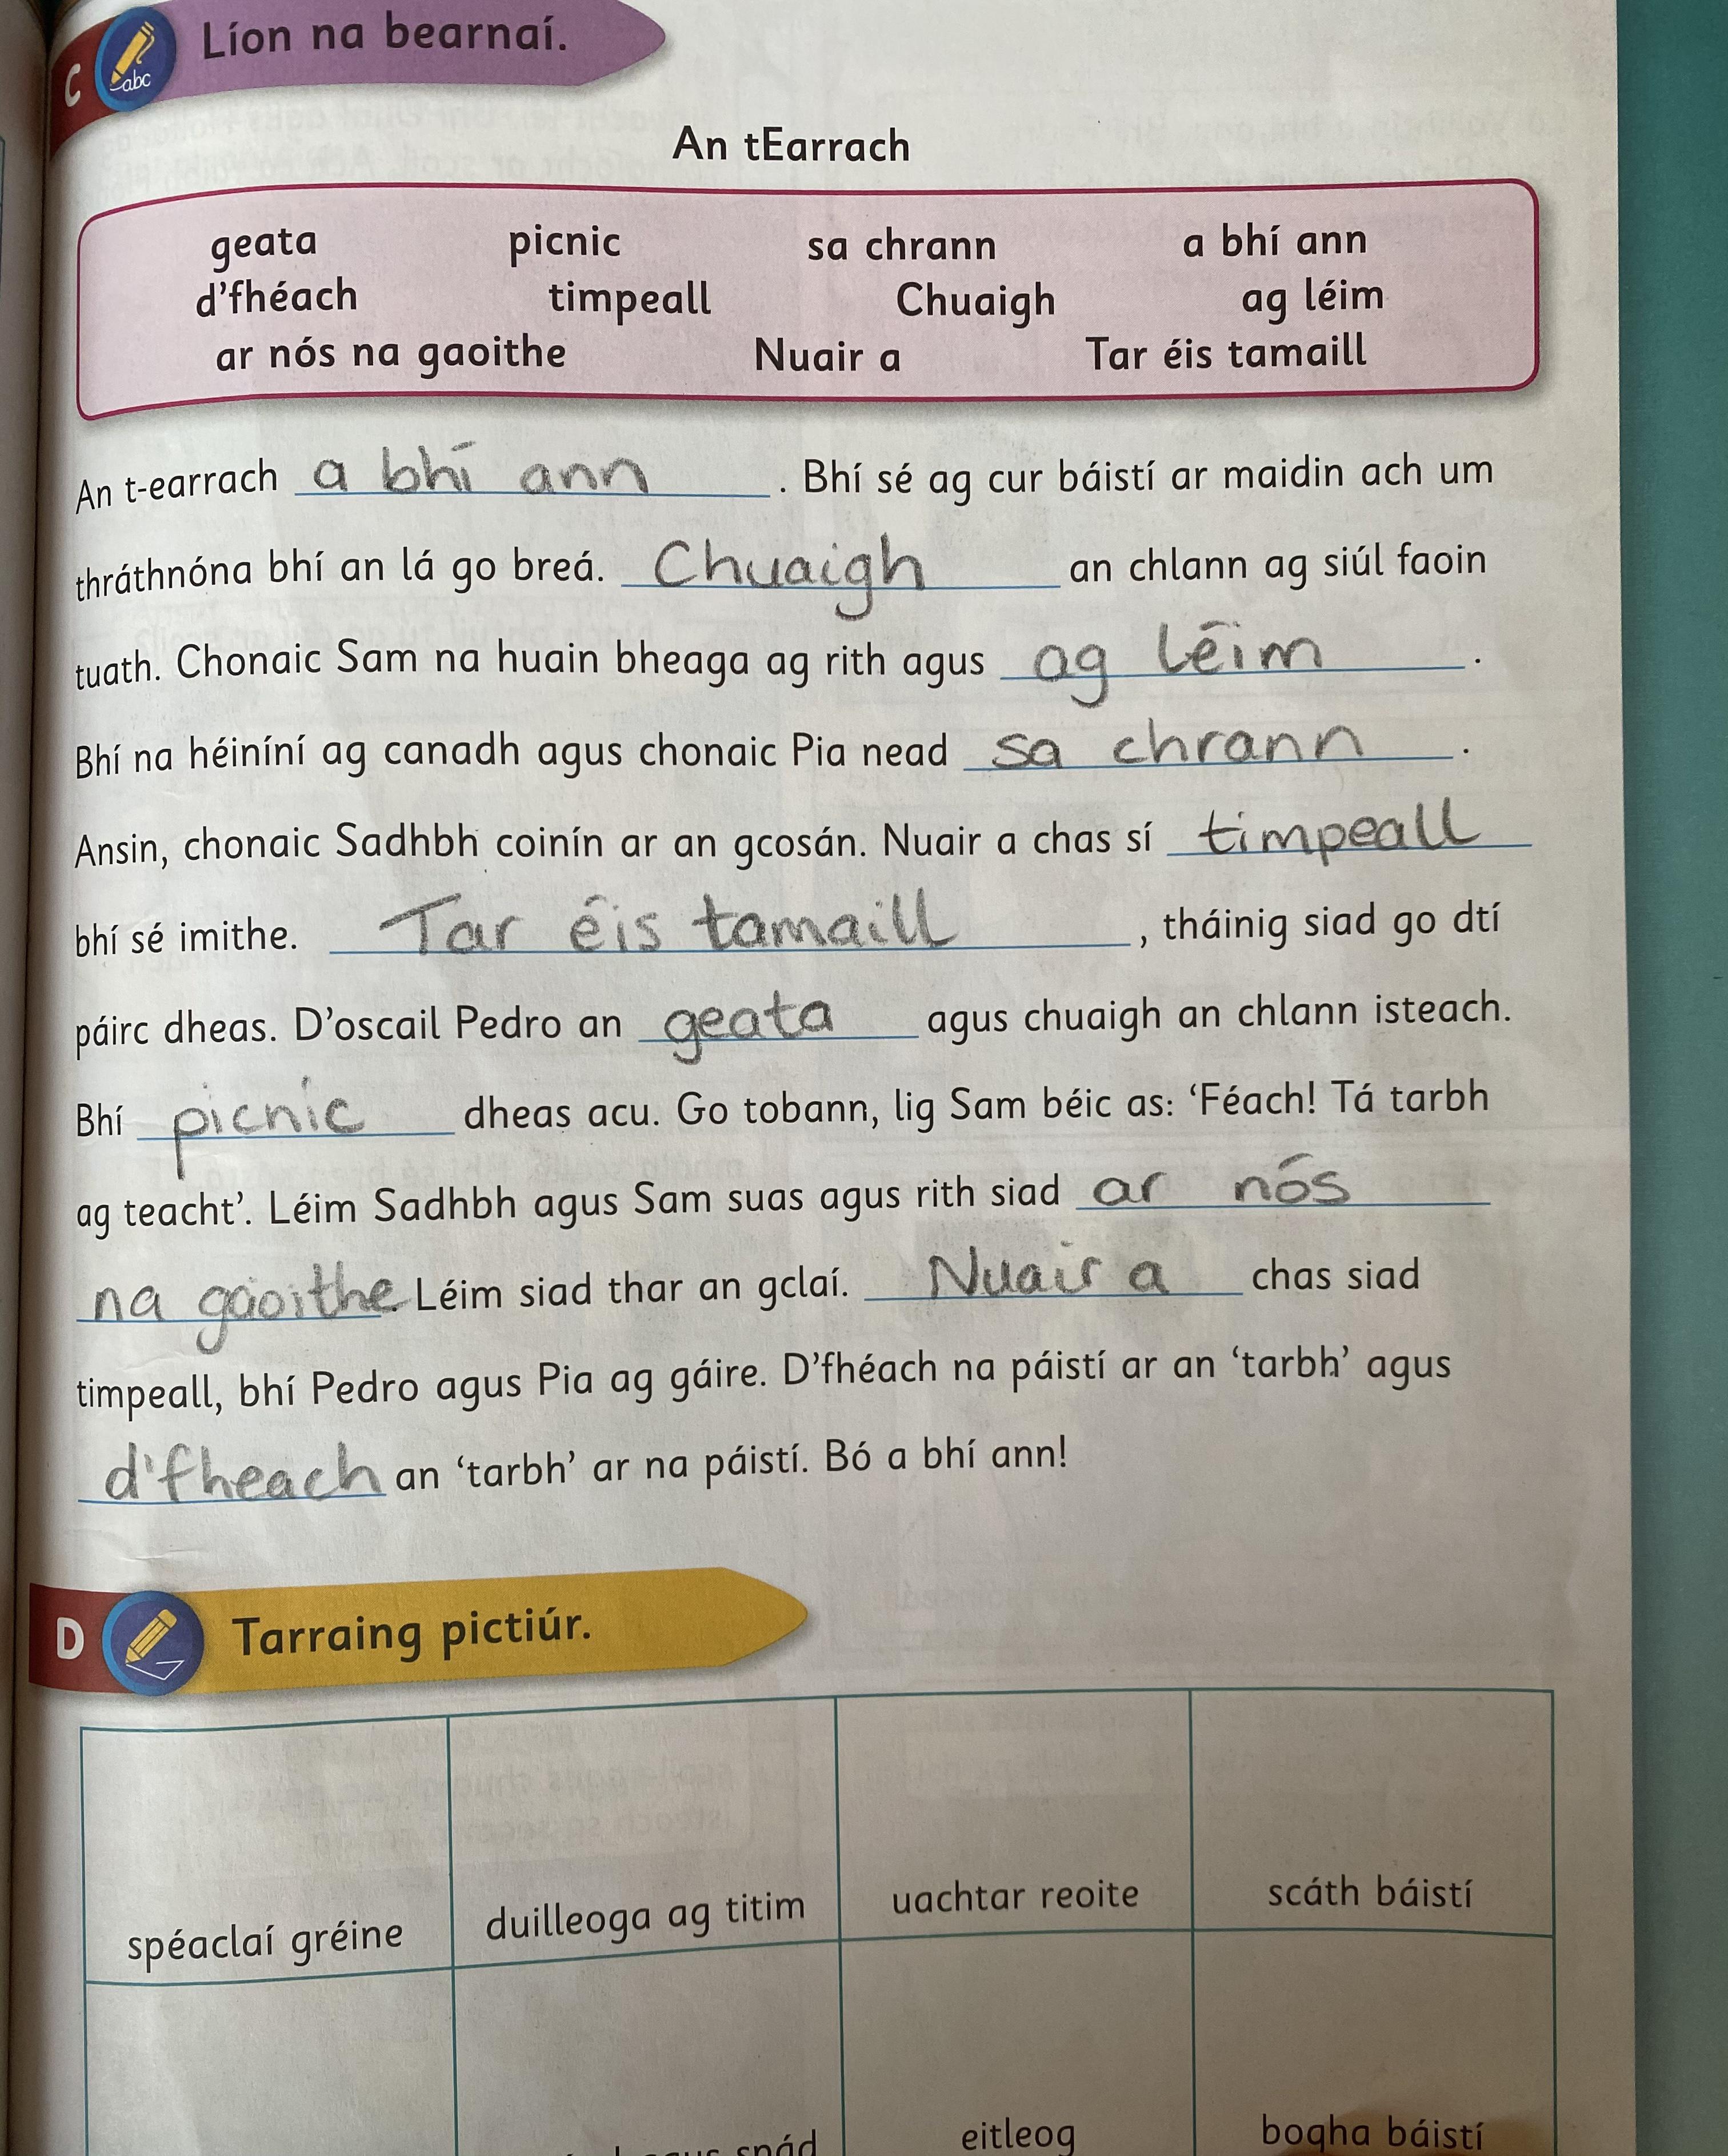 C abc Líon na bearnaí.
An tEarrach
geata picnic sa chrann a bhí ann
d'fhéach timpeall Chuaigh ag léim
ar nós na gaoithe Nuair a Tar éis tamaill
An t-earrach a bhí ann . Bhí sé ag cur báistí ar maidin ach um
thráthnóna bhí an lá go breá. Chuaigh an chlann ag siúl faoin
tuath. Chonaic Sam na huain bheaga ag rith agus ag léim .
Bhí na héiníní ag canadh agus chonaic Pia nead sa chrann .
Ansin, chonaic Sadhbh coinín ar an gcosán. Nuair a chas sí timpeall
bhí sé imithe. Tar éis tamaill , tháinig siad go dtí
páirc dheas. D'oscail Pedro an geata agus chuaigh an chlann isteach.
Bhí picnic dheas acu. Go tobann, lig Sam béic as: 'Féach! Tá tarbh
ag teacht'. Léim Sadhbh agus Sam suas agus rith siad ar nós
na gaoithe. Léim siad thar an gclaí. Nuair a chas siad
timpeall, bhí Pedro agus Pia ag gáire. D'fhéach na páistí ar an 'tarbh' agus
d'fheach an 'tarbh' ar na páistí. Bó a bhí ann!
D Tarraing pictiúr.
spéaclaí gréine duilleoga ag titim uachtar reoite scáth báistí
eitleog bogha báistí